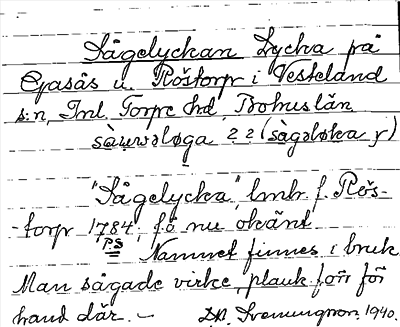 Sågelyckan Lycka på
Gasås u. Röstorp i Vesteland
s:n, Inl. Torpe hd, Bohuslän
22 (sàgəløka
"Sågelycka", lmh f. Rös-
-torp 1784, fö nu okänt
PS
Namnet finnes i bruk
Man sågade virke, plank förr för
hand där. —
1940.